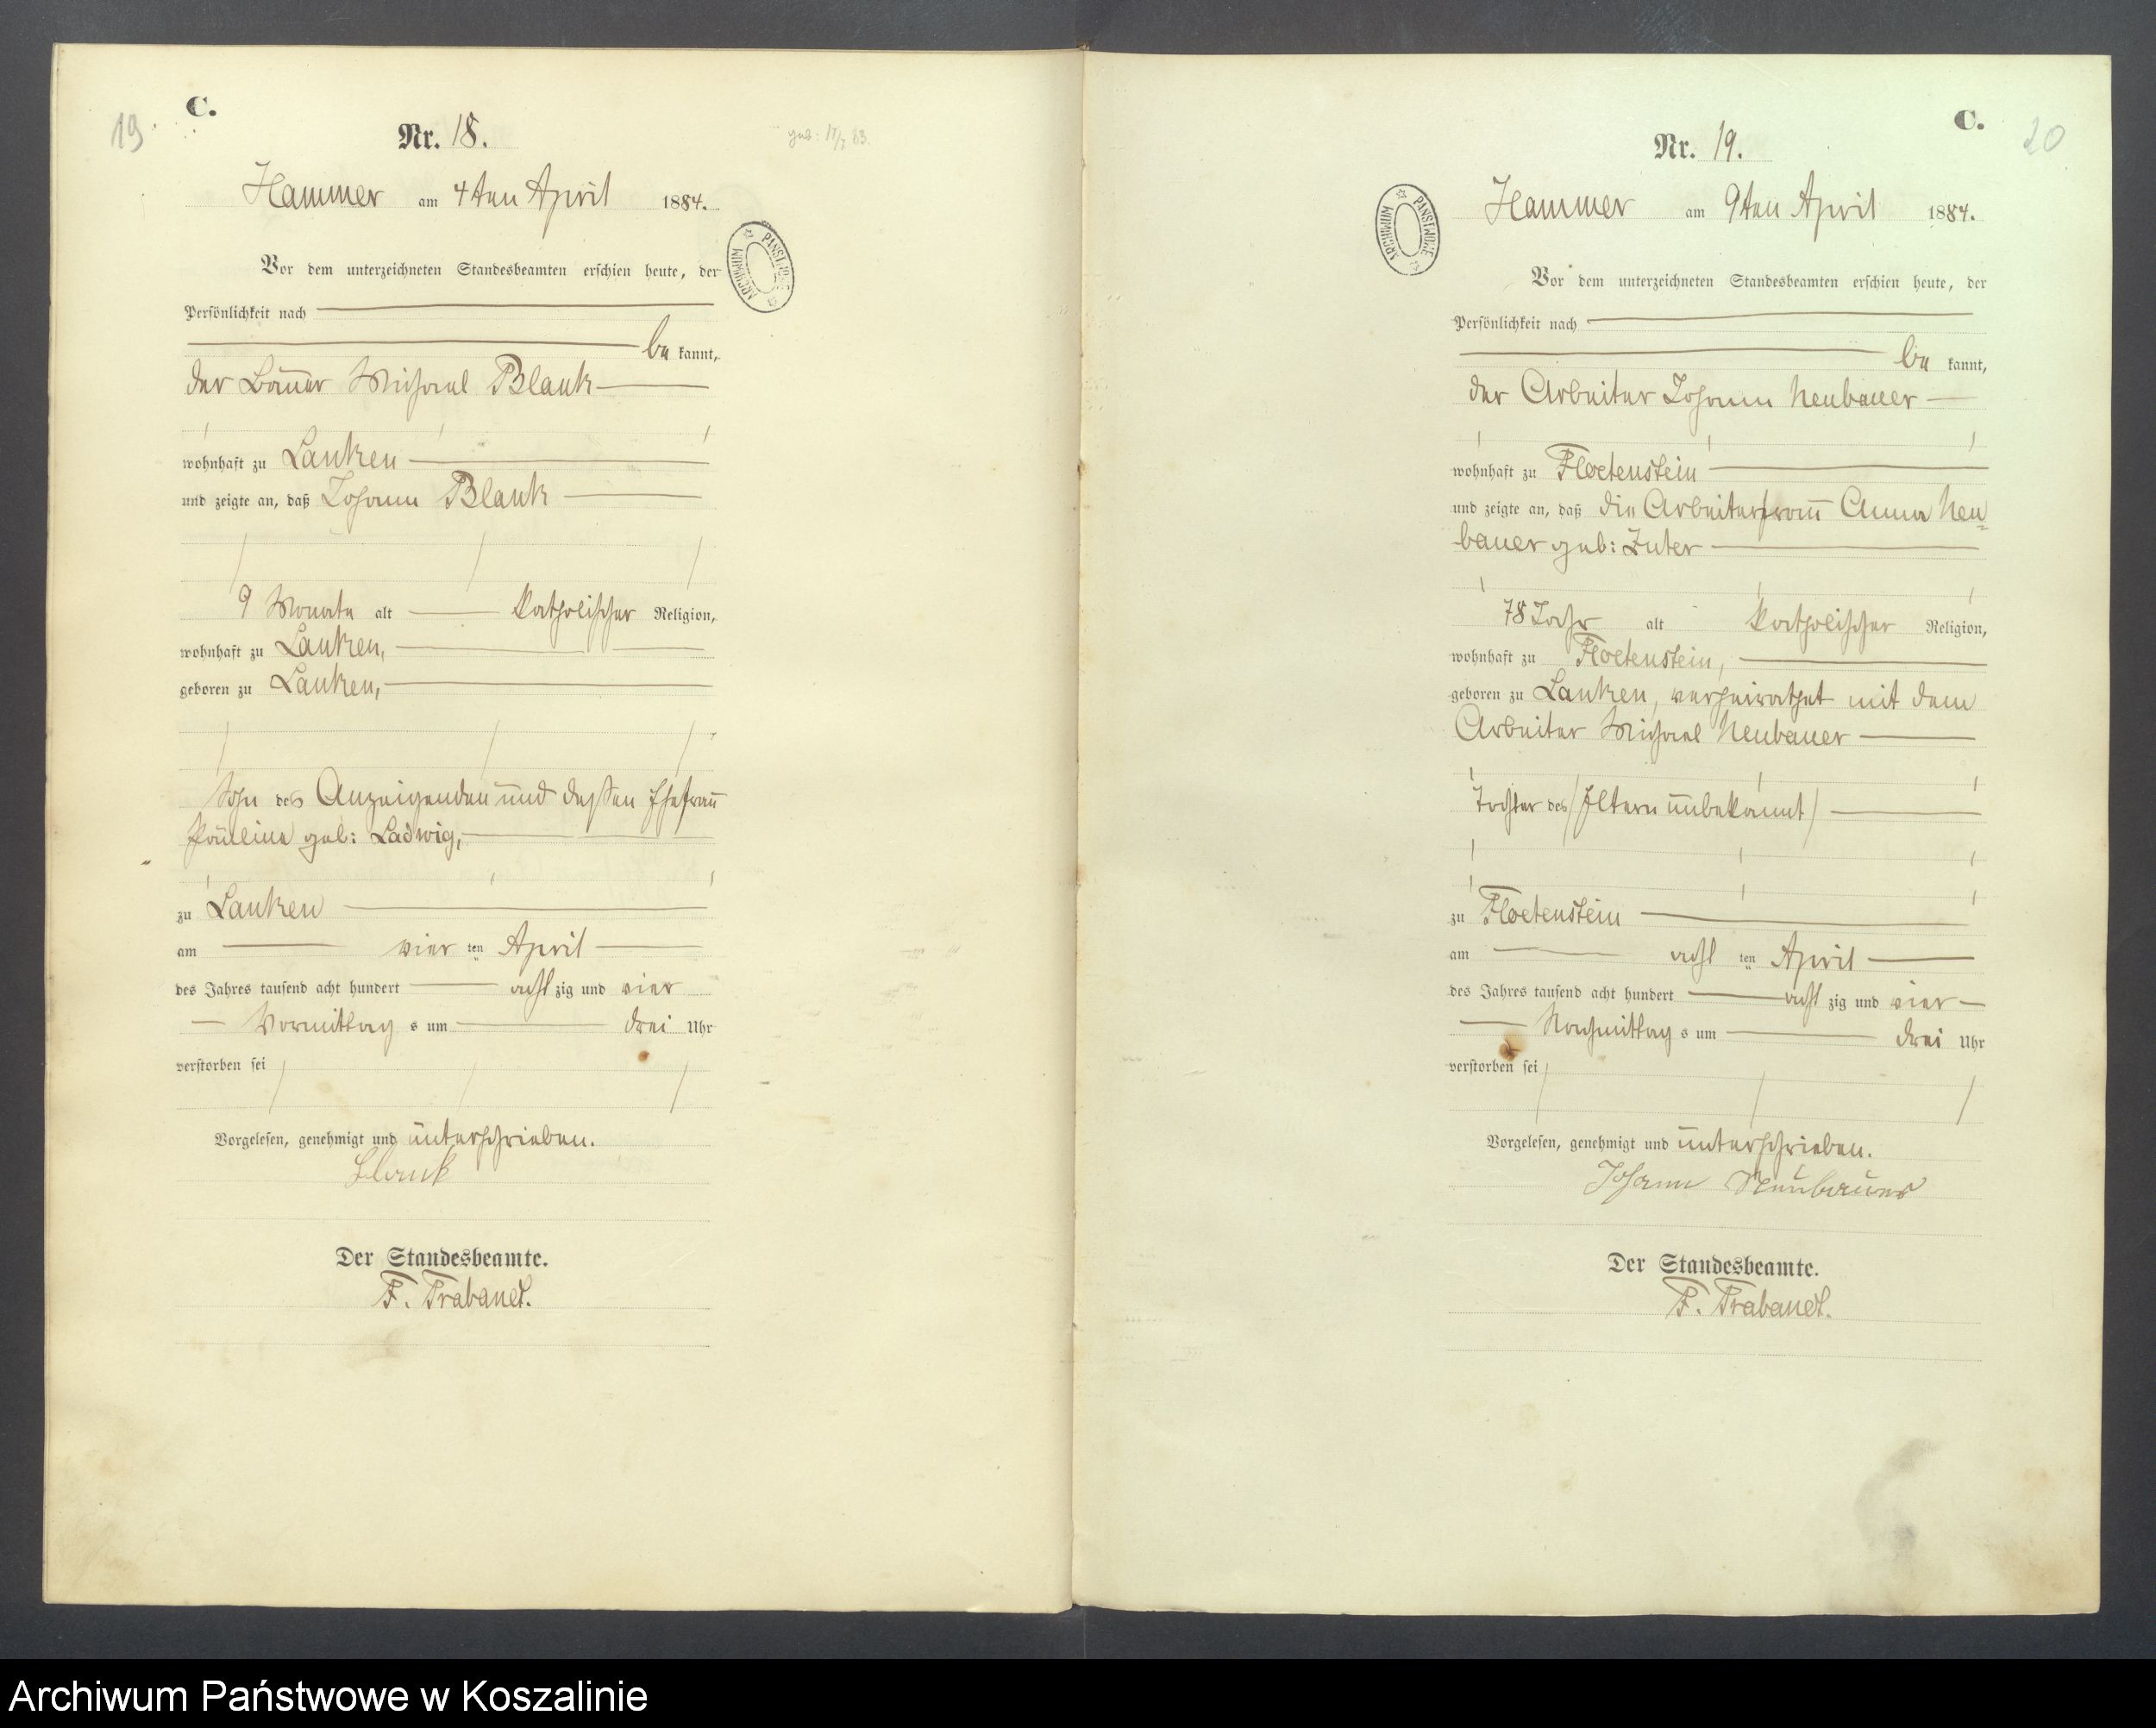 19.
C.
Nr. 18.
geb: 17/7 83.
Hammer am 4ten April 1884.
Vor dem unterzeichneten Standesbeamten erschien heute, der
Persönlichkeit nach
be kannt,
der Bauer Michael Blank
wohnhaft zu Lanken
und zeigte an, daß Johann Blank
9 Monate alt katholischer Religion,
wohnhaft zu Lanken,
geboren zu Lanken,
Sohn des Anzeigenden und dessen Ehefrau
Pauline geb: Ladwig,
zu Lanken
am vier ten April
des Jahres tausend acht hundert acht zig und vier
Vormittag s um drei Uhr
verstorben sei
Vorgelesen, genehmigt und unterschrieben.
Blank
Der Standesbeamte.
F. Trabandt.
ARCHIWUM PAŃSTWOWE
C.
20
Nr. 19.
Hammer am 9ten April 1884.
ARCHIWUM PAŃSTWOWE
Vor dem unterzeichneten Standesbeamten erschien heute, der
Persönlichkeit nach
be kannt,
der Arbeiter Johann Neubauer
wohnhaft zu Floetenstein
und zeigte an, daß die Arbeiterfrau Anna Neu=
bauer geb: Zuter
78 Jahr alt katholischer Religion,
wohnhaft zu Floetenstein,
geboren zu Lanken, verheirathet mit dem
Arbeiter Michael Neubauer
Tochter des (Eltern unbekannt)
zu Floetenstein
am acht ten April
des Jahres tausend acht hundert acht zig und vier
Nachmittag s um drei Uhr
verstorben sei
Vorgelesen, genehmigt und unterschrieben.
Johann Neubauer
Der Standesbeamte.
F. Trabandt.
Archiwum Państwowe w Koszalinie